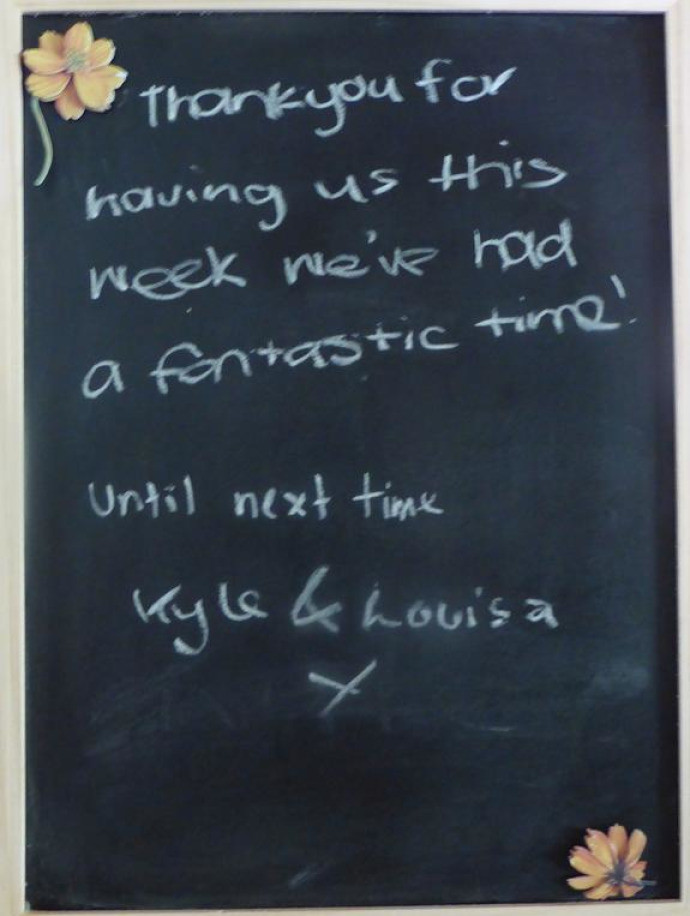 Thankyou for
having us this
week we've had
a fantastic time!
Until next time
Kyle & Louisa
X